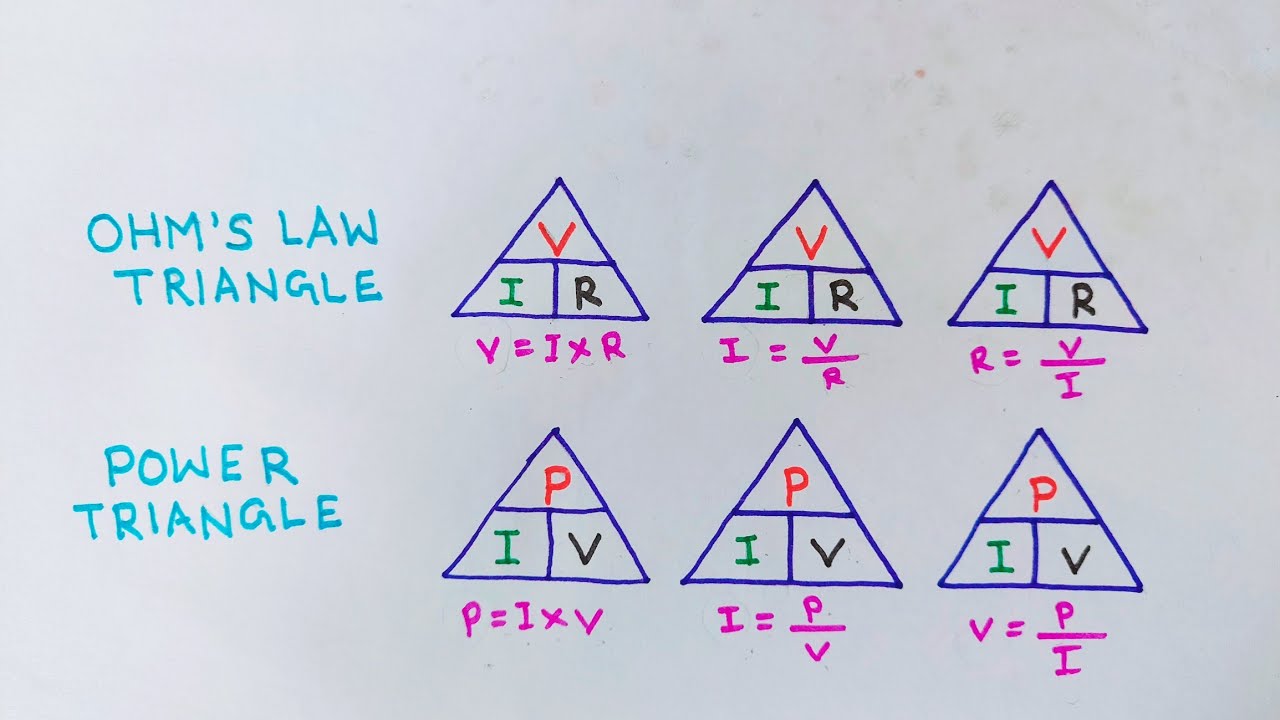 OHM'S LAW
TRIANGLE
V
I R
V = I × R
V
I R
I = V/R
V
I R
R = V/I
POWER
TRIANGLE
P
I V
P = I × V
P
I V
I = P/V
P
I V
V = P/I